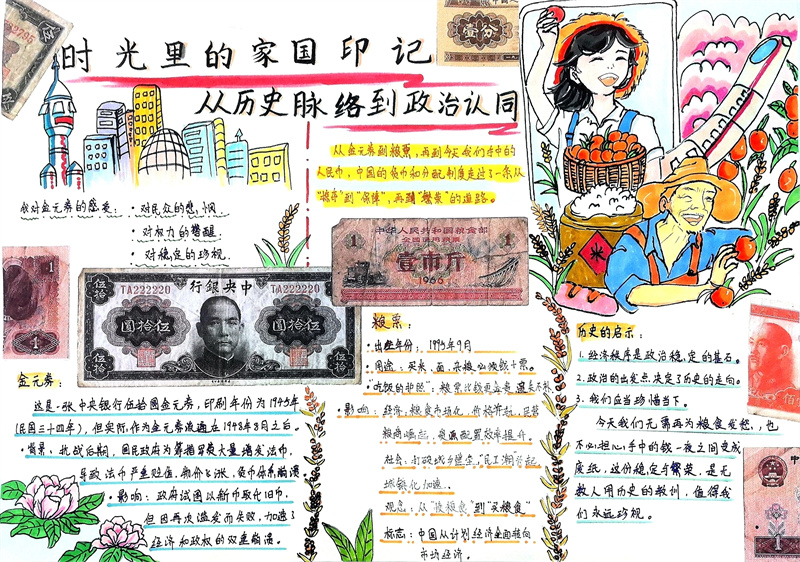 时光里的家国印记
从历史脉络到政治认同
从金元券到粮票,再到今天我们手中的
人民币,中国的货币和分配制度走过了一条从
"掠夺"到"保障",再到"繁荣"的道路。
我对金元券的感受:·对民众的悲悯
·对权力的警醒
·对稳定的珍视
壹分
1
伍拾
TA222220
TA222220
行銀央中
圓拾伍
圓拾伍
中华人民共和国粮食部
全国通用粮票
壹市斤
1966
米
金元券:
这是一张中央银行伍拾圆金元券,印刷年份为1945年
(民国三十四年),但实际作为金元券流通在1948年8月之后。
·背景:抗战后期,国民政府为筹措军费大量增发法币,
导致法币严重贬值,物价飞涨,货币体系崩溃
·影响:政府试图以新币取代旧币,
但因再次滥发而失败,加速了
经济和政权的双重崩溃。
粮票:
·用途:买米、面、杂粮必须钱+票。
·影响:经济:粮食市场化,价格并轨,民营
粮商崛起,资源配置效率提升。
社会:打破城乡壁垒,"民工潮"节起
城镇化加速。
观念:从"
标志:中国从计划经济全面转向
市场经济。
历史的启示:
1.经济秩序是政治稳定的基石。
2.政治的出发点决定了历史的走向。
3.我们应当珍惜当下。
今天我们无需再为粮食发愁,也
不必担心手中的钱一夜之间变成
废纸,这份稳定与繁荣,是无
数人用历史的教训,值得我
们永远珍视。
1